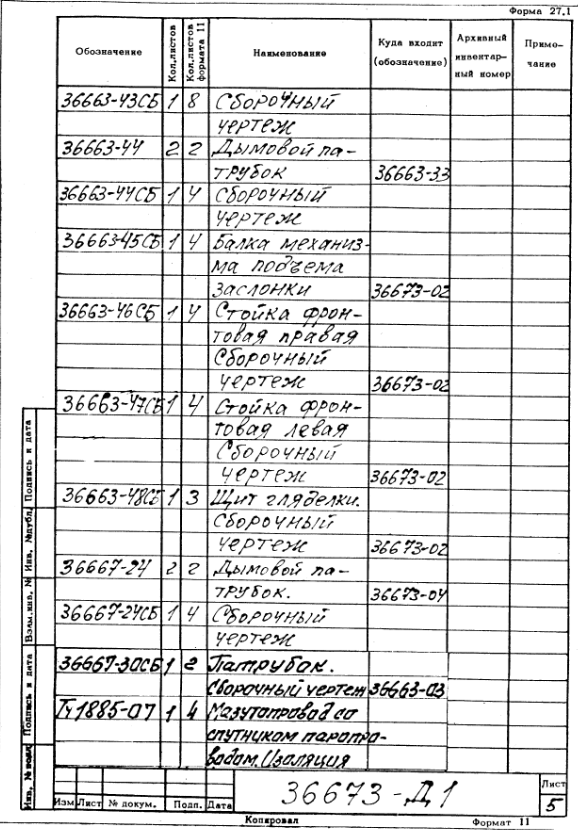 Форма 27.1
Обозначение Кол.листов Кол.листов формата 11 Наименование Куда входит (обозначение) Архивный инвентарный номер Примечание
36663-43СБ 1 8 Сборочный
чертеж
36663-44 2 2 Дымовой па-
трубок 36663-33
36663-44СБ 1 4 Сборочный
чертеж
36663-45СБ 1 4 Балка механиз-
ма подъема
заслонки 36673-02
36663-46СБ 1 4 Стойка фрон-
товая правая
Сборочный
чертеж 36673-02
36663-47СБ 1 4 Стойка фрон-
товая левая
Сборочный
чертеж 36673-02
36663-48СБ 1 3 Щит гляделки.
Сборочный
чертеж 36673-02
36667-24 2 2 Дымовой па-
трубок. 36673-04
36667-24СБ 1 4 Сборочный
чертеж
36667-30СБ 1 2 Патрубок.
Сборочный чертеж 36663-03
1885-07 1 4 Мазутопровод со
спутником паропро-
водом. Изоляция
Инв. № подл Подпись и дата Взам.инв. № Инв. №дубл Подпись и дата
Изм Лист № докум. Подп. Дата
36673-Д1
Лист
5
Копировал Формат 11